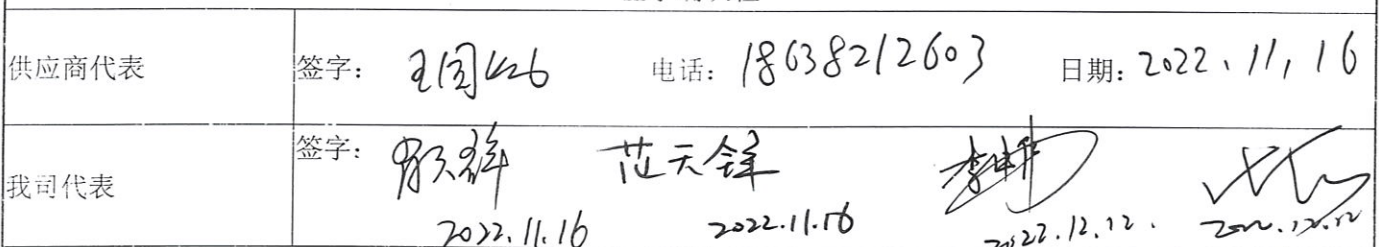 供应商代表 签字: 王国 电话: 18638212603 日期: 2022.11.16
我司代表 签字: 范天锋
2022.11.16 2022.11.16 2022.12.12. 2022.12.12